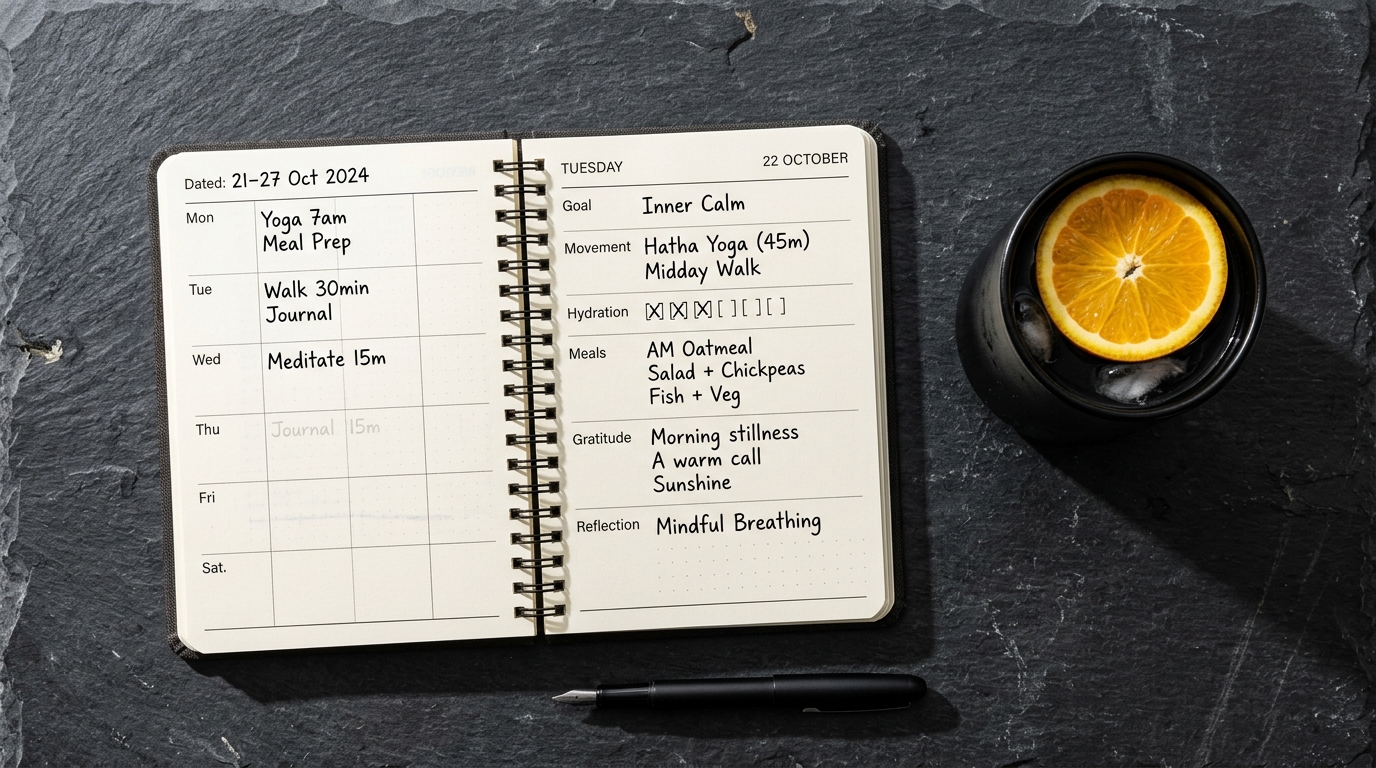 Dated: 21–27 Oct 2024
Mon Yoga 7am
Meal Prep
Tue Walk 30min
Journal
Wed Meditate 15m
Thu Journal 15m
Fri
Sat.
TUESDAY 22 OCTOBER
Goal Inner Calm
Movement Hatha Yoga (45m)
Midday Walk
Hydration [X] [X] [X] [ ] [ ] [ ]
Meals AM Oatmeal
Salad + Chickpeas
Fish + Veg
Gratitude Morning stillness
A warm call
Sunshine
Reflection Mindful Breathing